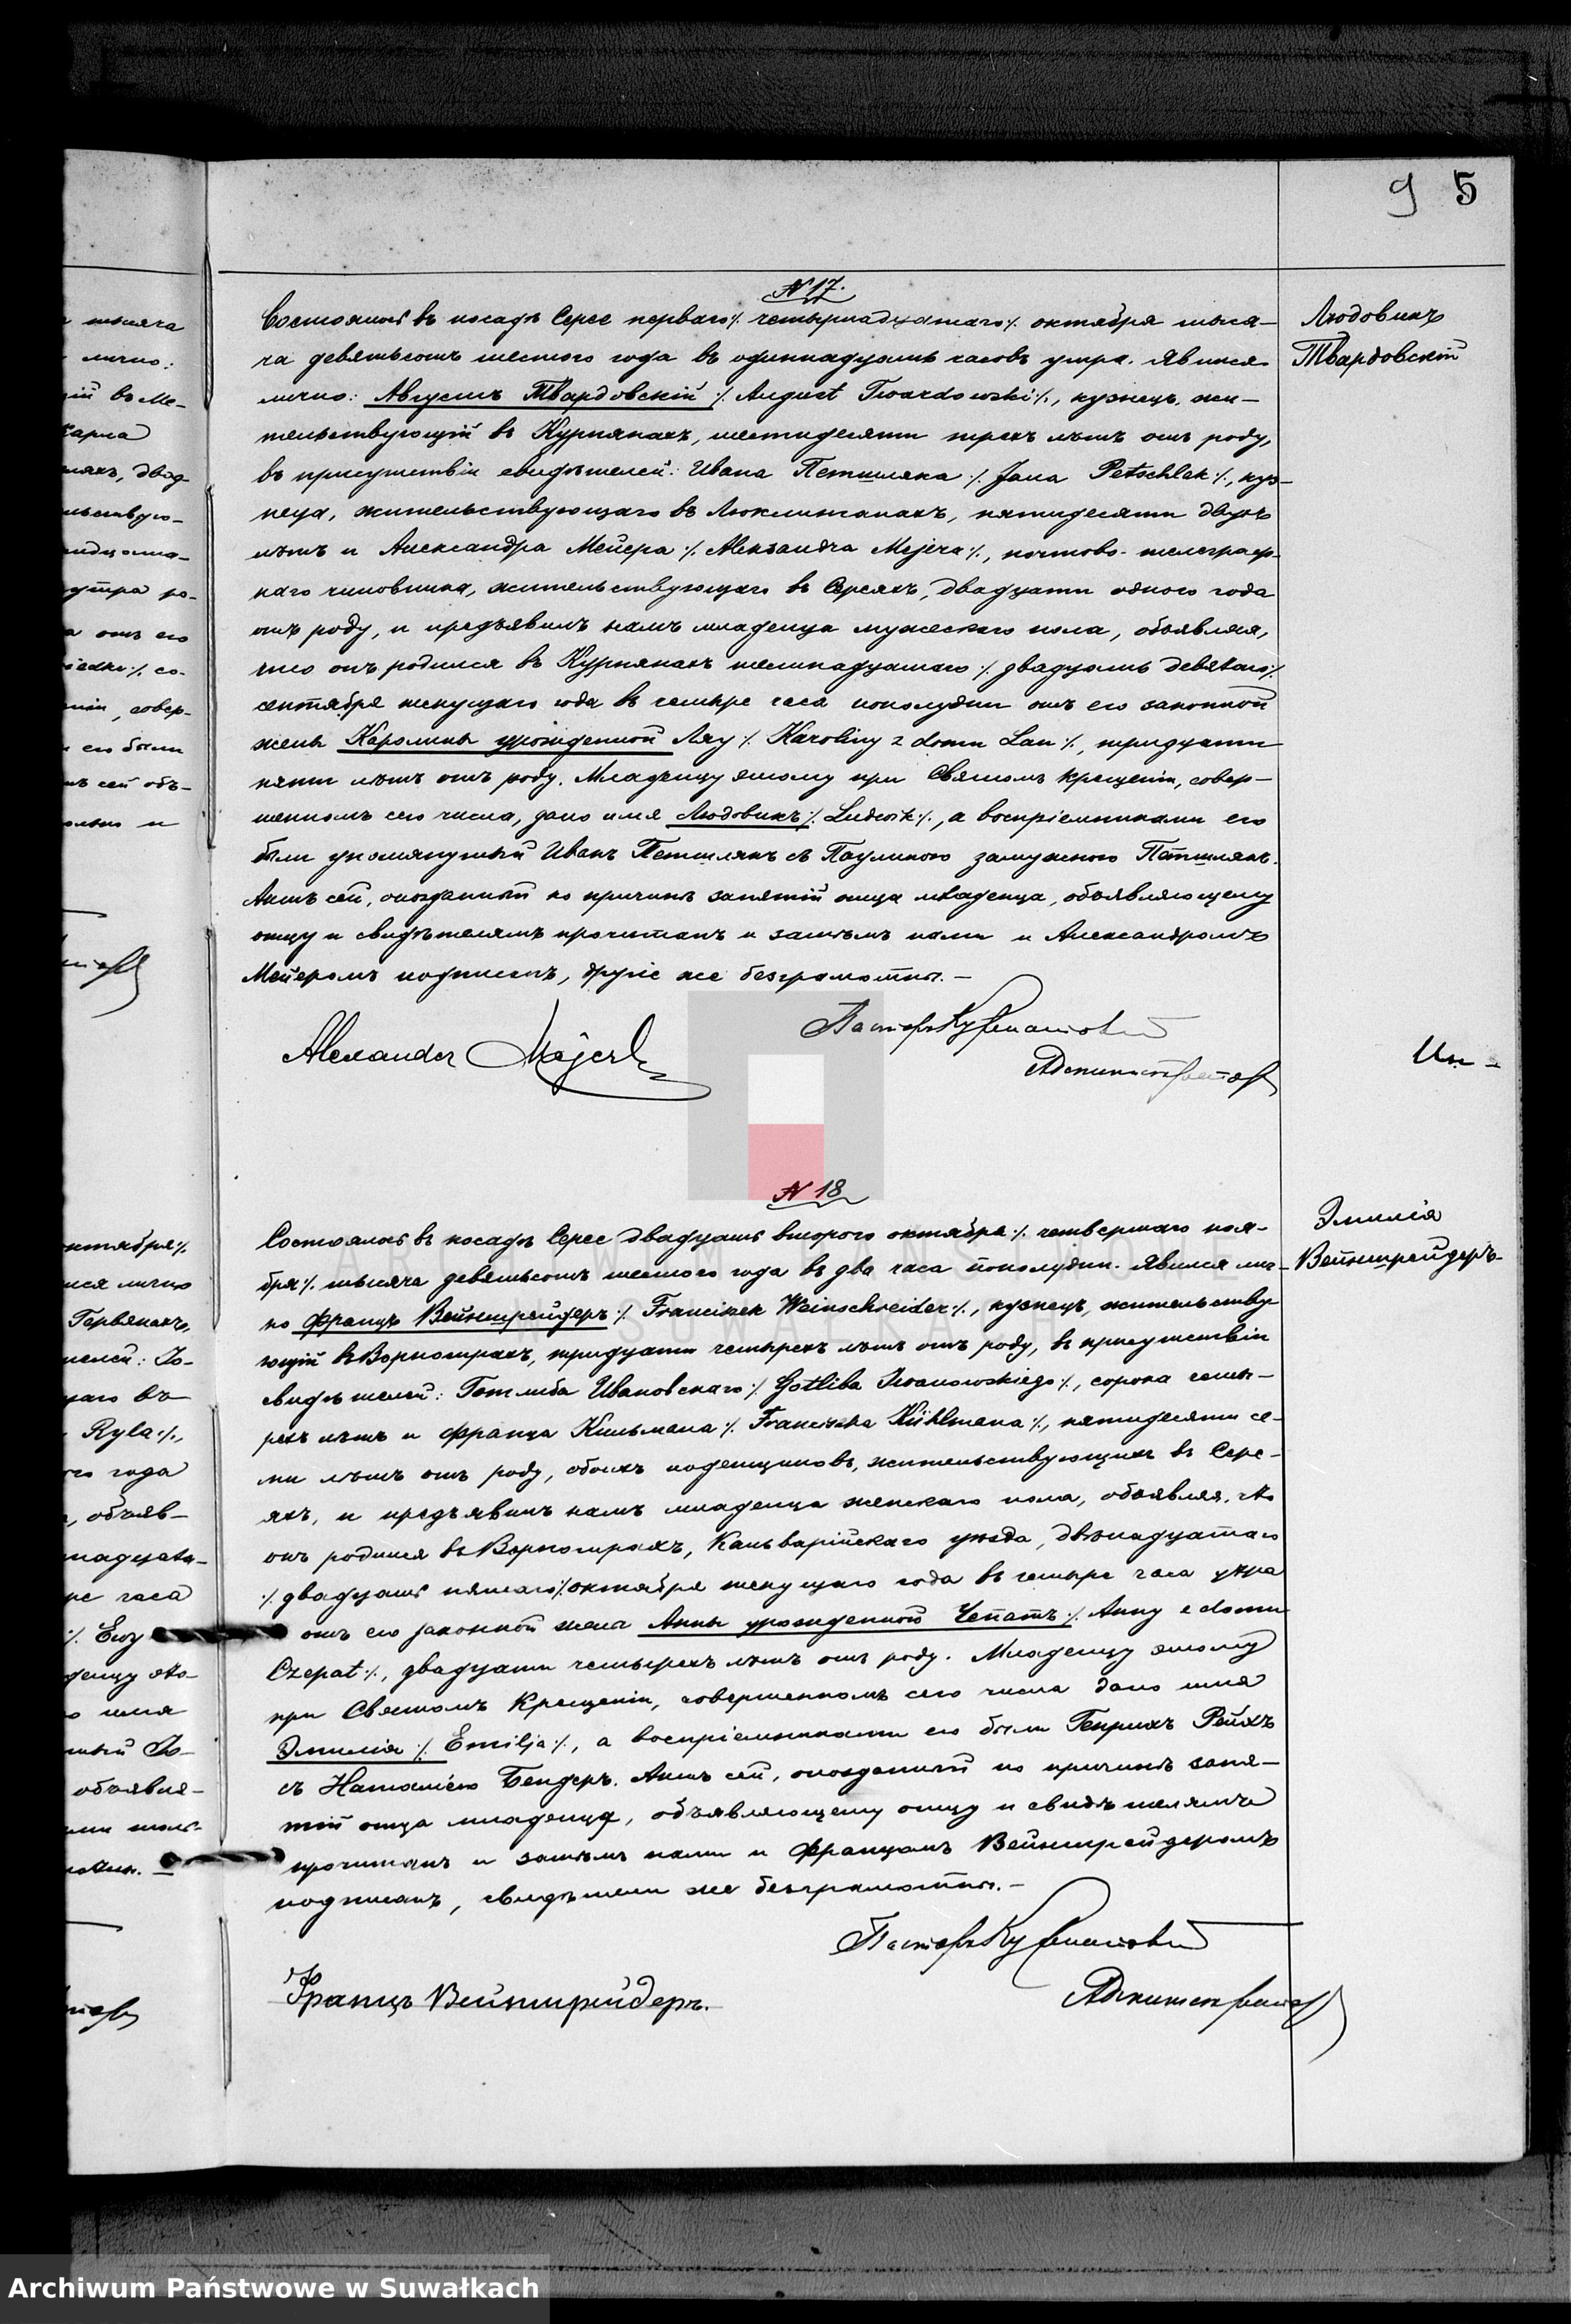 9 5
N 17.
Людовикъ
Твардовскій
Состоялось въ посадѣ Сереѣ перваго /: четырнадцатаго :/ октября тыся-
ча девятьсотъ шестого года въ одиннадцать часовъ утра. Явился
лично: Августъ Твардовскій /: August Twardowski :/, кузнецъ, жи-
тельствующій въ Курпянахъ, шестидесяти трехъ лѣтъ отъ роду,
въ присутствіи свидѣтелей: Ивана Петшляка /: Jana Petschlak :/, куз-
неца, жительствующаго въ, пятидесяти двухъ
лѣтъ и Александра Мейера /: Aleksandra Mejera :/, почтово-телеграф-
наго чиновника, жительствующаго въ Сереяхъ, двадцати одного года
отъ роду, и предъявилъ намъ младенца мужескаго пола, объявляя,
что онъ родился въ Курпянахъ шестнадцатаго /: двадцать девятаго :/
сентября текущаго года въ четыре часа пополудни отъ его законной
жены Каролины урожденной Лау /: Karoliny z domu Lau :/, тридцати
пяти лѣтъ отъ роду. Младенцу этому при Святомъ Крещеніи, совер-
шенномъ сего числа, дано имя Людовикъ /: Ludwik :/, а воспріемниками его
были упомянутый Иванъ Петшлякъ съ Паулиною замужною Петшлякъ.
Актъ сей, опозданный по причинѣ занятій отца младенца, объявляющему
отцу и свидѣтелямъ прочитанъ и затѣмъ нами и Александромъ
Мейеромъ подписанъ, другіе же безграмотны. –
Alexander Mejer
Пасторъ
Администраторъ
N 18
Эмилія
Вейншрейдеръ
Состоялось въ посадѣ Сереѣ двадцать второго октября /: четвертаго ноя-
бря :/ тысяча девятьсотъ шестого года въ два часа пополудни. Явился лич-
но Францъ Вейншрейдеръ /: Franciszek Weinschreider :/, кузнецъ, жительству-
ющій въ, тридцати четырехъ лѣтъ отъ роду, въ присутствіи
свидѣтелей: Готлиба Ивановскаго /: Gotliba Iwanowskiego :/, сорока четы-
рехъ лѣтъ и Франца Кильмана /: Franciszka Kühlmana :/, пятидесяти се-
ми лѣтъ отъ роду, обоихъ поденщиковъ, жительствующихъ въ Сере-
яхъ, и предъявилъ намъ младенца женскаго пола, объявляя, что
онъ родился въ, Кальварійскаго уѣзда, двѣнадцатаго
/: двадцать пятаго :/ октября текущаго года въ четыре часа утра
отъ его законной жены Анны урожденной Чепатъ /: Anny z domu
Czepat :/, двадцати четырехъ лѣтъ отъ роду. Младенцу этому
при Святомъ Крещеніи, совершенномъ сего числа дано имя
Эмилія /: Emilja :/, а воспріемниками его были Генрихъ Рейхъ
съ Наталіею Бендеръ. Актъ сей, опозданный по причинѣ заня-
тій отца младенца, объявляющему отцу и свидѣтелямъ
прочитанъ и затѣмъ нами и Францомъ Вейншрейдеромъ
подписанъ, свидѣтели же безграмотны. –
Пасторъ
Францъ Вейншрейдеръ.
Администраторъ
ARCHIWUM PAŃSTWOWE
W SUWAŁKACH
Archiwum Państwowe w Suwałkach